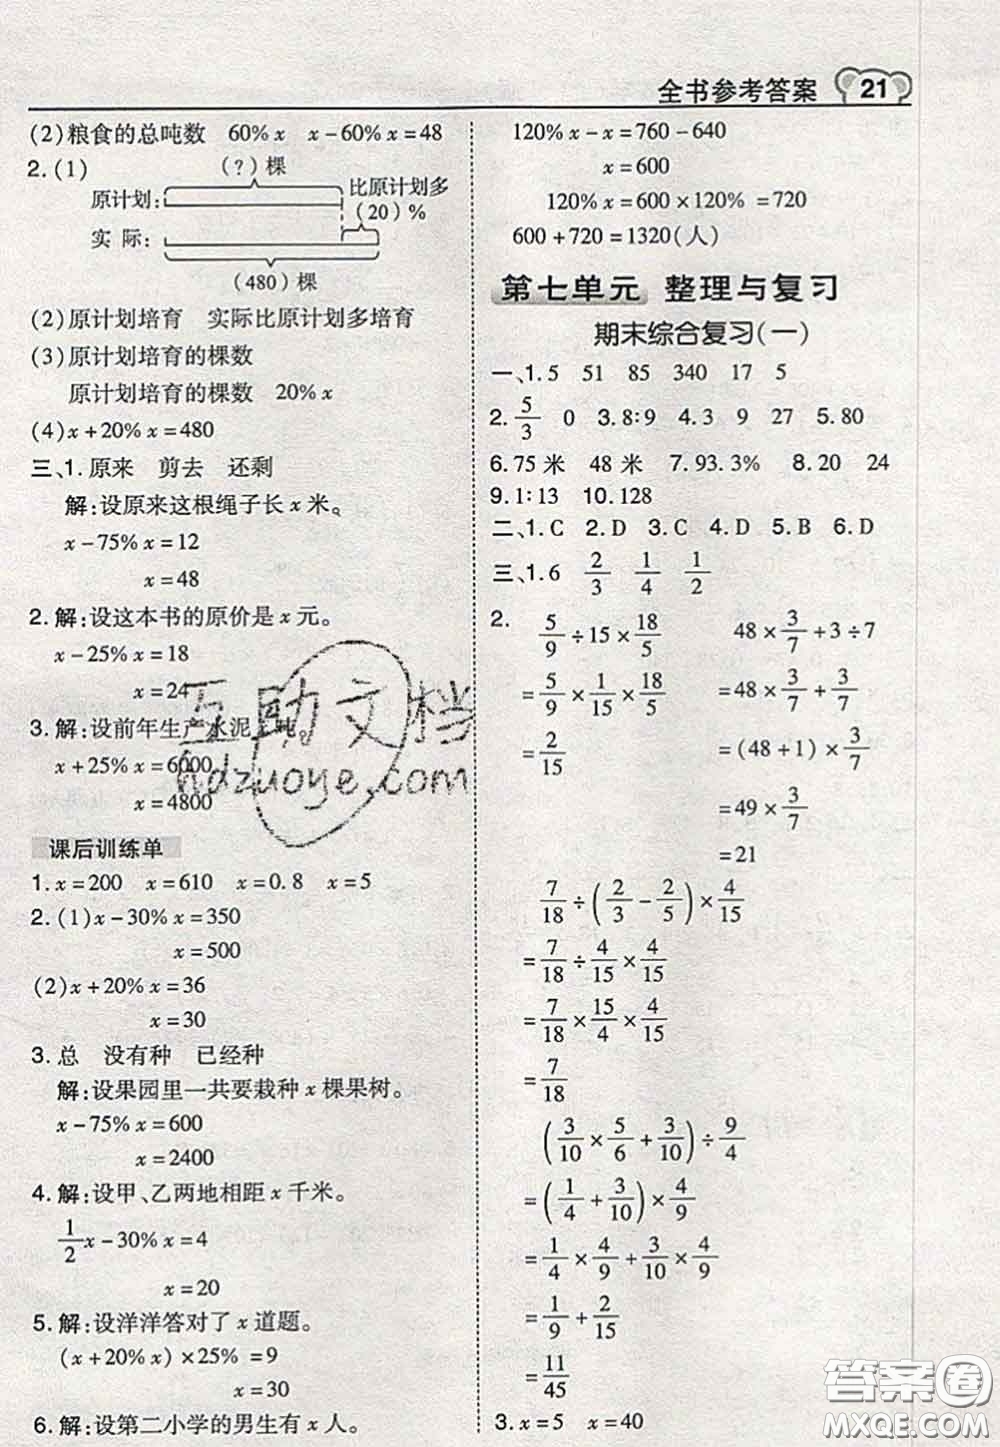 全书参考答案 21
(2)粮食的总吨数 60%x x-60%x=48
2.(1) (?)棵
原计划: 比原计划多
(20)%
实 际:
(480)棵
(2)原计划培育 实际比原计划多培育
(3)原计划培育的棵数
原计划培育的棵数 20%x
(4)x+20%x=480
三、1.原来 剪去 还剩
解:设原来这根绳子长x米。
x-75%x=12
x=48
2.解:设这本书的原价是x元。
x-25%x=18
x=24
3.解:设前年生产水泥x吨。
x+25%x=6000
x=4800
课后训练单
1.x=200 x=610 x=0.8 x=5
2.(1)x-30%x=350
x=500
(2)x+20%x=36
x=30
3.总 没有种 已经种
解:设果园里一共要栽种x棵果树。
x-75%x=600
x=2400
4.解:设甲、乙两地相距x千米。
1/2x-30%x=4
x=20
5.解:设洋洋答对了x道题。
(x+20%x)×25%=9
x=30
6.解:设第二小学的男生有x人。
120%x-x=760-640
x=600
120%x=600×120%=720
600+720=1320(人)
第七单元 整理与复习
期末综合复习(一)
一、1.5 51 85 340 17 5
2.5/3 0 3.8:9 4.3 9 27 5.80
6.75米 48米 7.93.3% 8.20 24
9.1:13 10.128
二、1.C 2.D 3.C 4.D 5.B 6.D
三、1.6 2/3 1/4 1/2
2. 5/9÷15×18/5
=5/9×1/15×18/5
=2/15
48×3/7+3÷7
=48×3/7+3/7
=(48+1)×3/7
=49×3/7
=21
7/18÷(2/3-2/5)×4/15
=7/18÷4/15×4/15
=7/18×15/4×4/15
=7/18
(3/10×5/6+3/10)÷9/4
=(1/4+3/10)×4/9
=1/4×4/9+3/10×4/9
=1/9+2/15
=11/45
3.x=5 x=40
互助文档
hdzuoye.com
答案圈
MXQE.COM